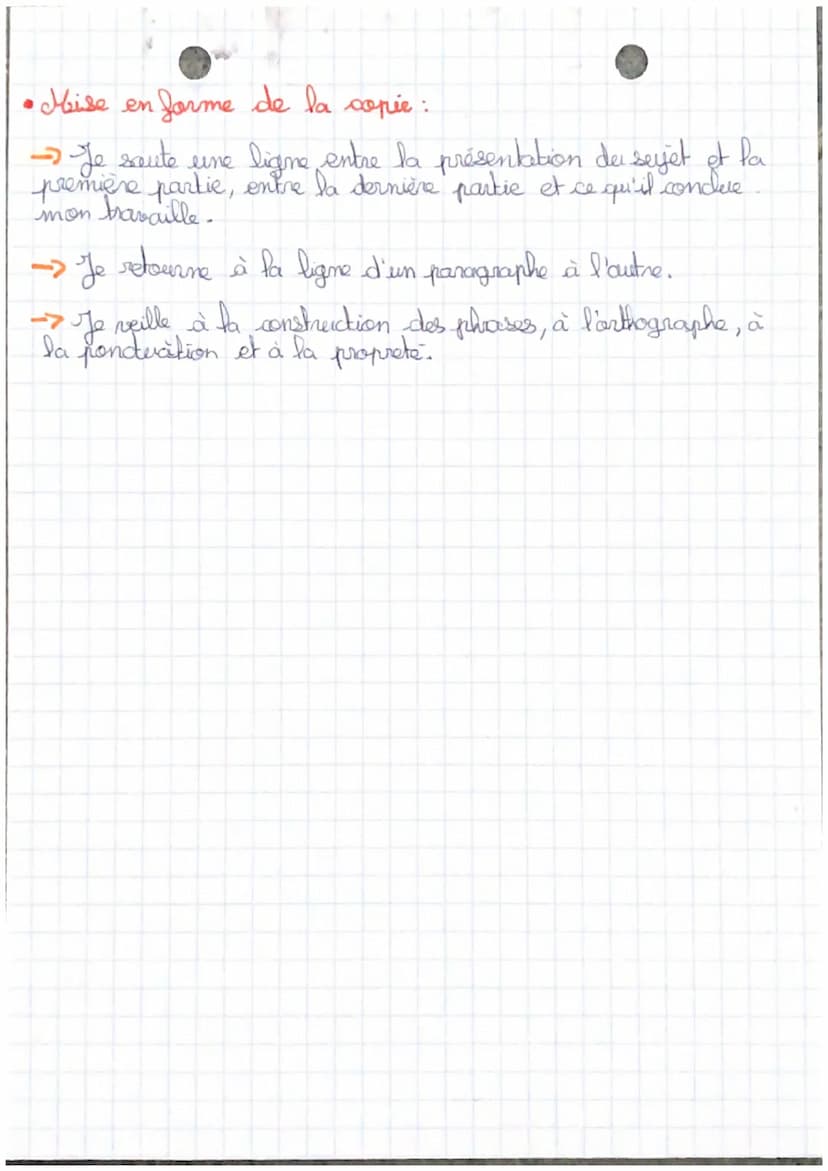 • Mise en forme de la copie :
→ Je saute une ligne entre la présentation du sujet et la
première partie, entre la dernière partie et ce qu'il conclue
mon travaille.
→ Je retourne à la ligne d'un paragraphe à l'autre.
→ Je veille à la construction des phrases, à l'orthographe, à
la ponctuation et à la propreté.